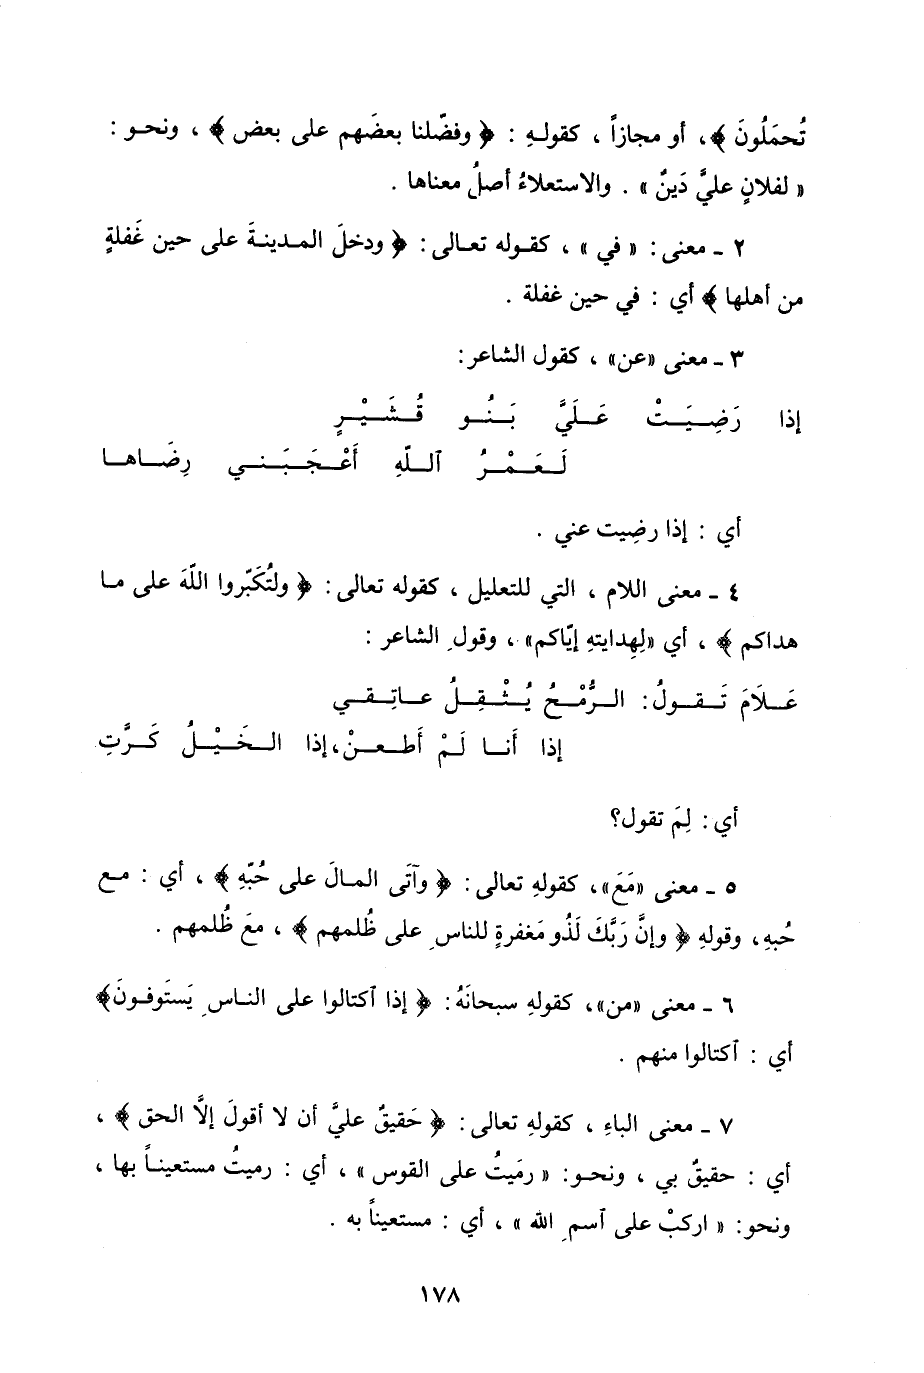 تُحمَلُونَ ﴾، أو مجازاً ، كقولهِ : ﴿ وفضّلنا بعضَهم على بعض ﴾ ، ونحو :
« لفلانٍ عليَّ دَينٌ » . والاستعلاءُ أصلُ معناها .
٢ ـ معنى : « في » ، كقوله تعالى : ﴿ ودخلَ المدينةَ على حين غَفلةٍ
من أهلها ﴾ أي : في حين غفلة .
٣ ـ معنى «عن» ، كقول الشاعر :
إذا رَضِيَتْ عَلَيَّ بَنُو قُشَيْرٍ
لَعَمْرُ ٱللّهِ أَعْجَبَني رِضَاها
أي : إذا رضِيت عني .
٤ ـ معنى اللام ، التي للتعليل ، كقوله تعالى : ﴿ ولتُكَبّروا اللّهَ على ما
هداكم ﴾ ، أي «لِهدايتهِ إيّاكم» ، وقولِ الشاعر :
عَلَامَ تَقولُ : الرُّمْحُ يُثْقِلُ عاتِقي
إذا أَنا لَمْ أَطعنْ، إذا الخَيْلُ كَرَّتِ
أي : لِمَ تقول؟
٥ ـ معنى «مَعَ» ، كقولهِ تعالى : ﴿ وآتَى المالَ على حُبّهِ ﴾ ، أي : مع
حُبهِ ، وقولهِ ﴿ وإنَّ رَبَّكَ لَذُو مَغفرةٍ للناسِ على ظُلمهم ﴾ ، معَ ظُلمهم .
٦ ـ معنى «من» ، كقولهِ سبحانَهُ : ﴿ إذا ٱكتالوا على الناسِ يَستَوفونَ﴾
أي : ٱكتالوا منهم .
٧ ـ معنى الباءِ ، كقولهِ تعالى : ﴿ حَقيقٌ عليَّ أن لا أقولَ إلَّا الحق ﴾ ،
أي : حقيقٌ بي ، ونحو : « رمَيتُ على القوس » ، أي : رميتُ مستعيناً بها ،
ونحو : « اركبْ على ٱسمِ الله » ، أي : مستعيناً به .
١٧٨